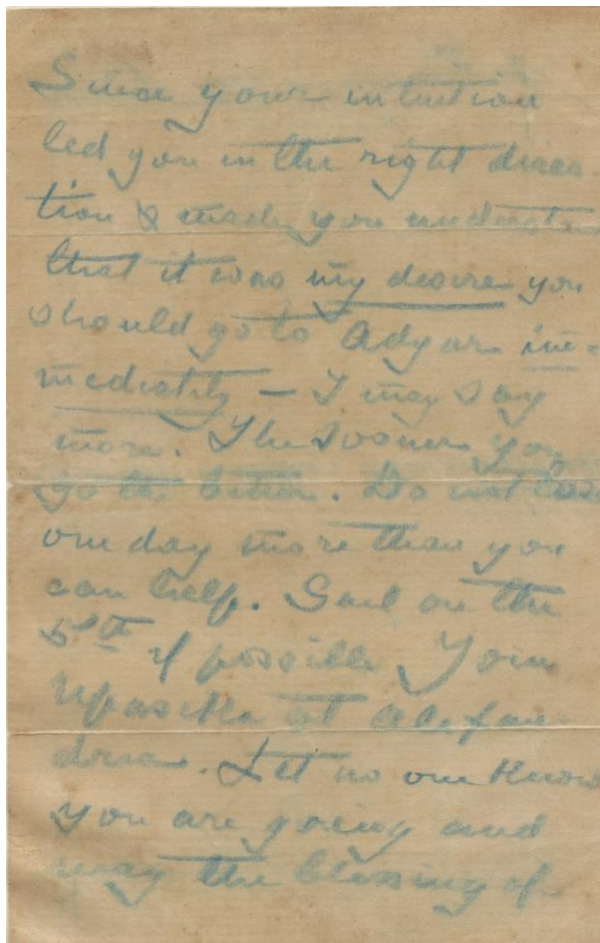 Since your intuition
led you in the right direc
tion & made you understa
that it was my desire you
should go to Adyar im=
mediately – I may say
more. The sooner you
go the better. Do not lose
one day more than you
can help. Sail on the
5th if possible Join
Upasika at Alexan
dria. Let no one know
you are going and
may the blessing of